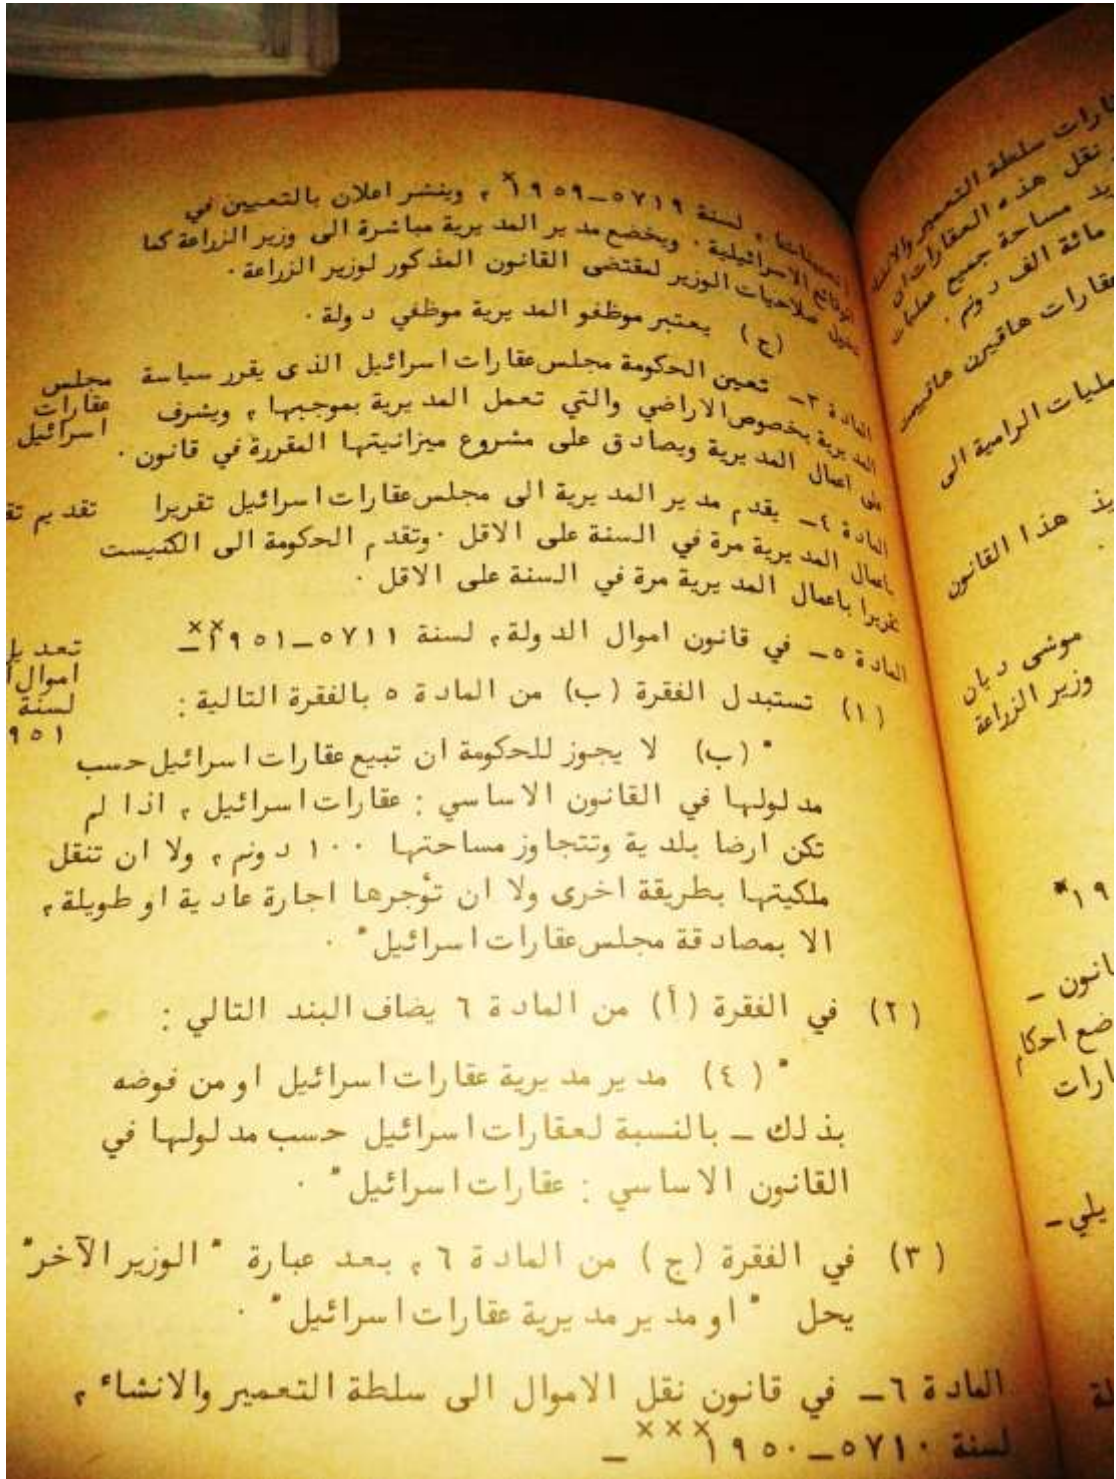 (تعيينات) ، لسنة ٥٧١٩ــ١٩٥٩× ، وينشر اعلان بالتعيين في
الوقائع الاسرائيلية . ويخضع مدير المديرية مباشرة الى وزير الزراعة كما
تخول صلاحيات الوزير لمقتضى القانون المذكور لوزير الزراعة .
(ج) يعتبر موظفو المديرية موظفي دولة .
المادة ٣ــ تعين الحكومة مجلس عقارات اسرائيل الذى يقرر سياسة
المديرية بخصوص الاراضي والتي تعمل المديرية بموجبها ، ويشرف
على اعمال المديرية ويصادق على مشروع ميزانيتها المقررة في قانون .
مجلس
عقارات
اسرائيل
المادة ٤ــ يقدم مدير المديرية الى مجلس عقارات اسرائيل تقريرا
باعمال المديرية مرة في السنة على الاقل . وتقدم الحكومة الى الكنيست
تقريرا باعمال المديرية مرة في السنة على الاقل .
تقديم
المادة ٥ــ في قانون اموال الدولة، لسنة ٥٧١١ــ١٩٥١×× ــ
لسنة
(١) تستبدل الفقرة (ب) من المادة ٥ بالفقرة التالية :
" (ب) لا يجوز للحكومة ان تبيع عقارات اسرائيل حسب
مدلولها في القانون الاساسي : عقارات اسرائيل ، اذا لم
تكن ارضا بلدية وتتجاوز مساحتها ١٠٠ دونم ، ولا ان تنقل
ملكيتها بطريقة اخرى ولا ان تؤجرها اجارة عادية او طويلة ،
الا بمصادقة مجلس عقارات اسرائيل" .
(٢) في الفقرة (أ) من المادة ٦ يضاف البند التالي :
" (٤) مدير مديرية عقارات اسرائيل او من فوضه
بذلك ــ بالنسبة لعقارات اسرائيل حسب مدلولها في
القانون الاساسي : عقارات اسرائيل" .
(٣) في الفقرة (ج) من المادة ٦ ، بعد عبارة " الوزير الآخر"
يحل " او مدير مديرية عقارات اسرائيل" .
المادة ٦ــ في قانون نقل الاموال الى سلطة التعمير والانشاء ،
لسنة ٥٧١٠ــ١٩٥٠××× ــ
سلطة التعمير
نقل هذه العقارات
مساحة جميع عمليات
مائة الف دونم .
الرامية الى
هذا القانون
موشى ديان
وزير الزراعة
يلي ــ